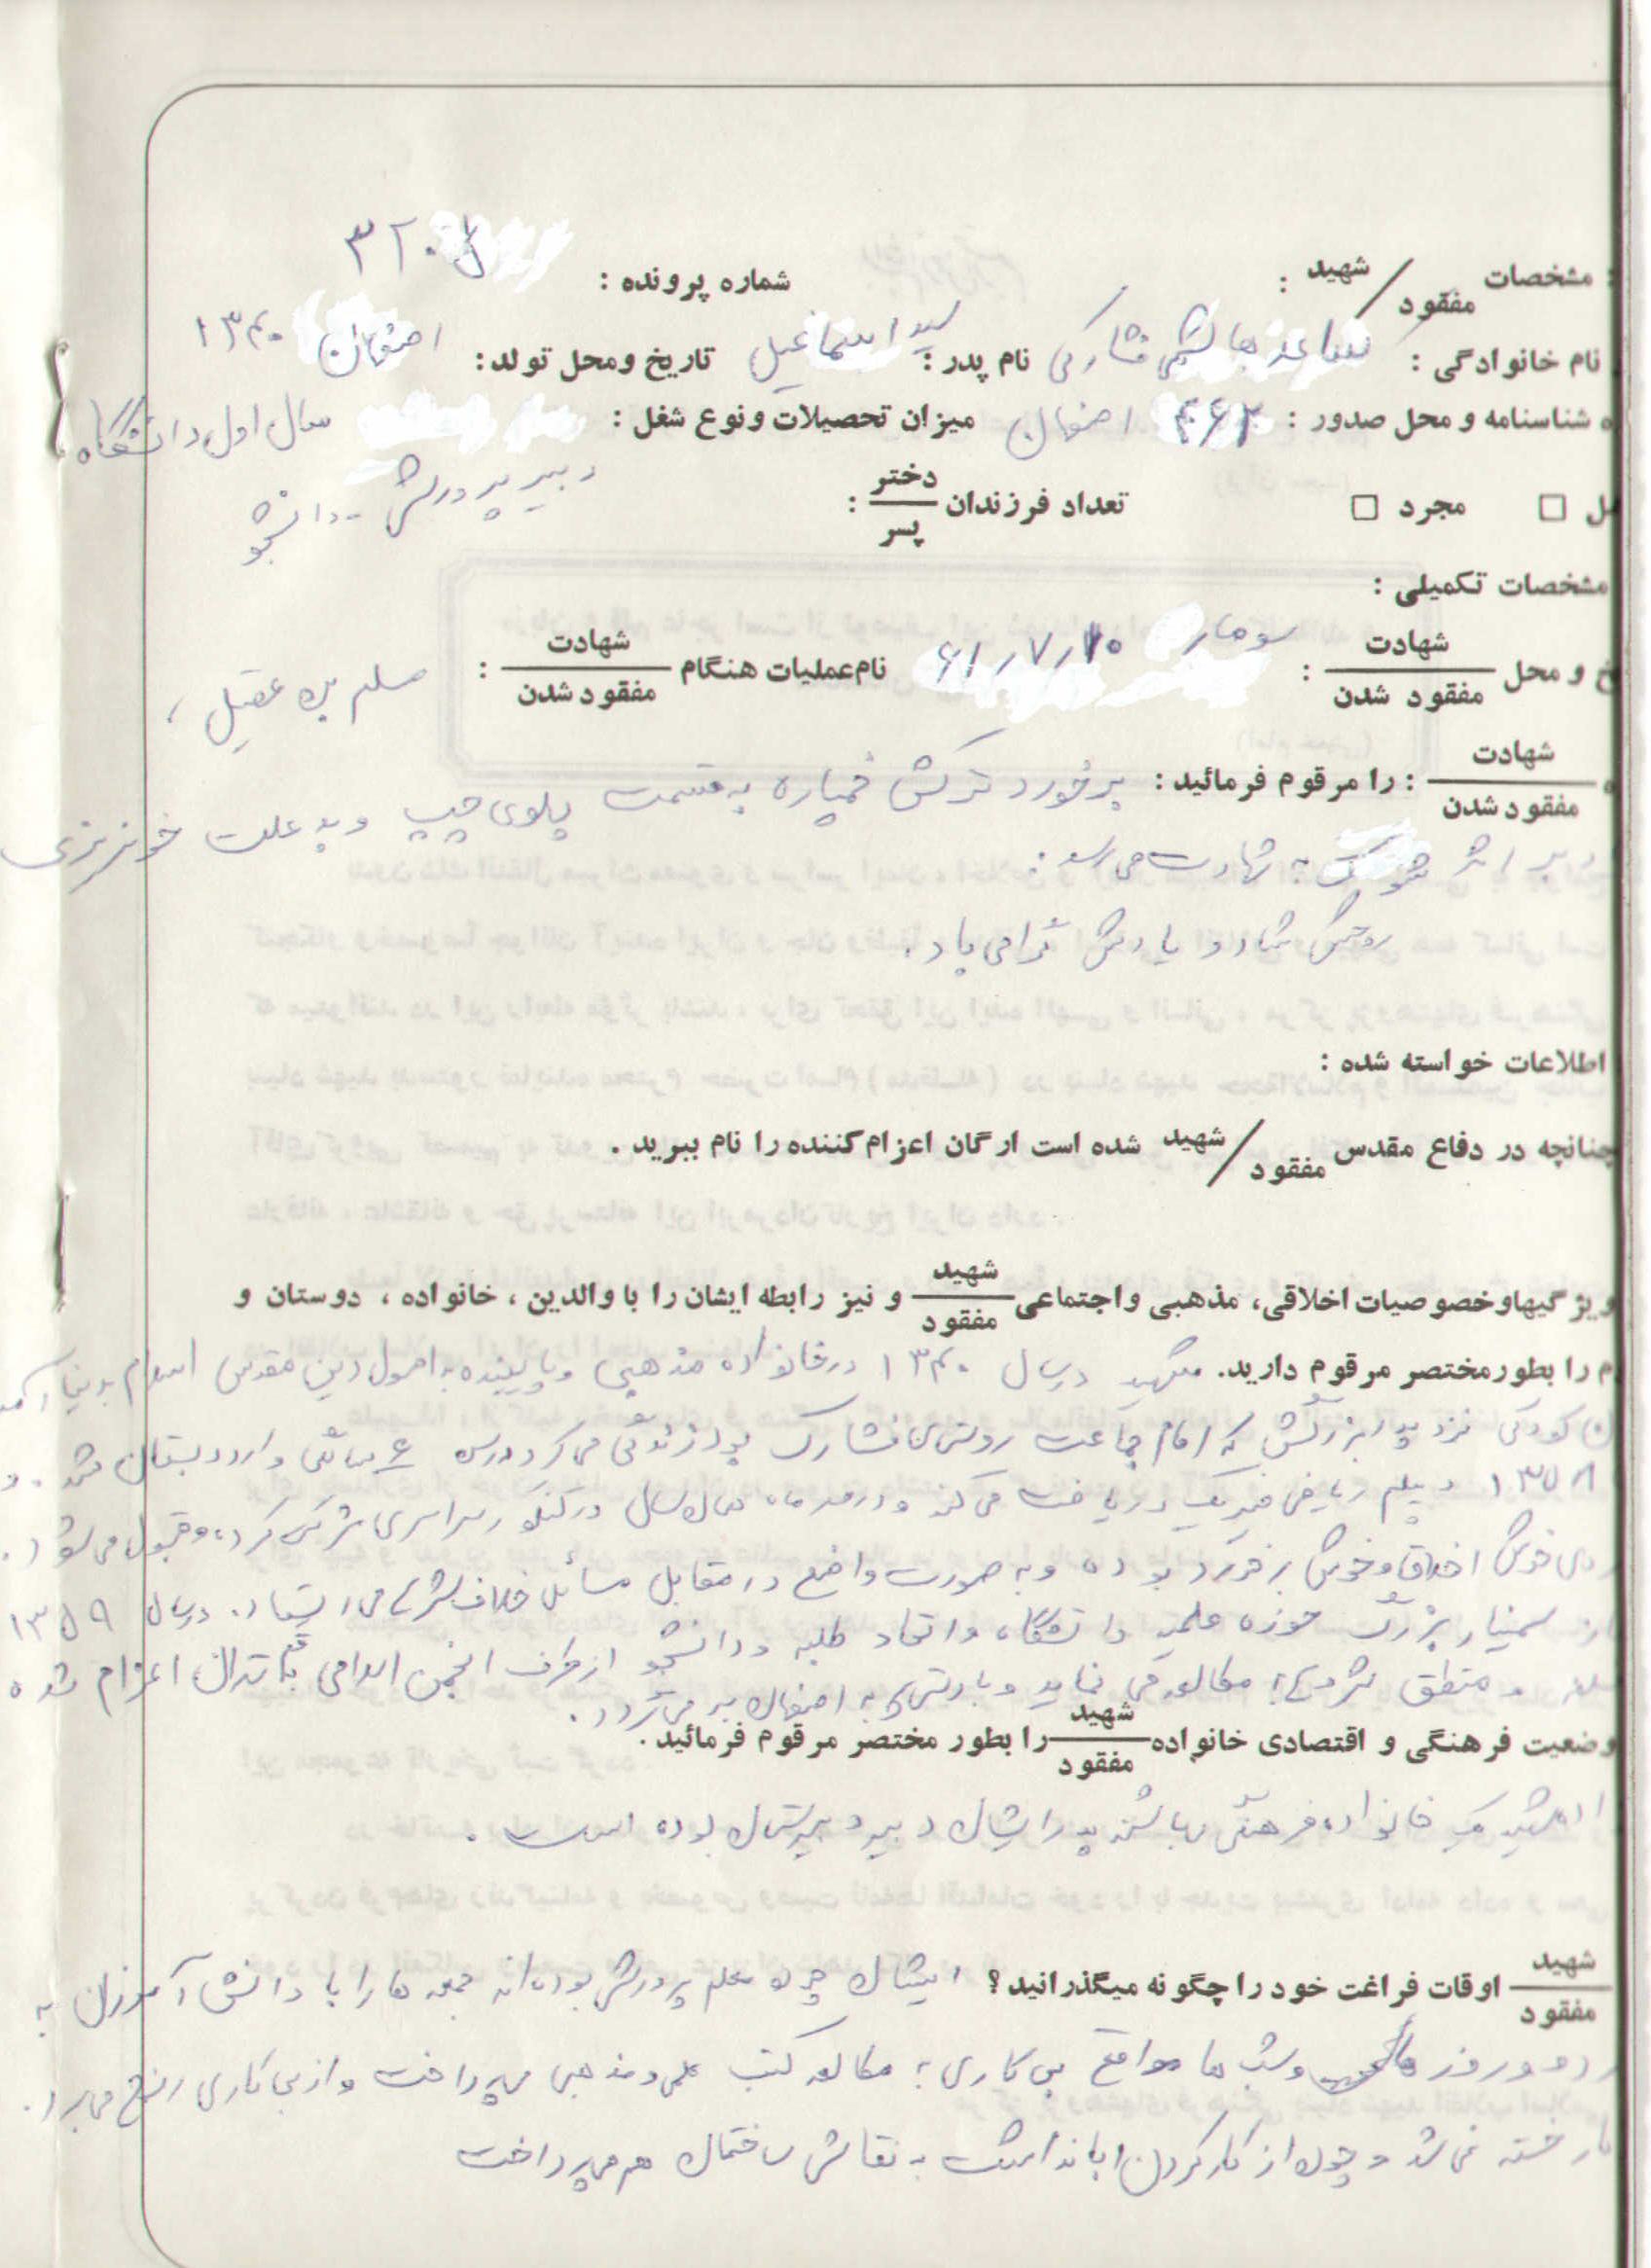 مشخصات شهید / مفقود :
شماره پرونده : ۳۲۰
نام خانوادگی : هاشمی فشارکی نام پدر : سید اسماعیل تاریخ ومحل تولد : اصفهان ۱۳۴۰
شناسنامه و محل صدور : ۴۶۲ اصفهان میزان تحصیلات ونوع شغل : سال اول دانشگاه
دبیر پرورشی - دانشجو
مجرد □ تعداد فرزندان دختر / پسر :
مشخصات تکمیلی :
و محل شهادت / مفقود شدن : سومار ۶۱/۷/۱۰ نام عملیات هنگام شهادت / مفقود شدن : مسلم بن عقیل
شهادت / مفقود شدن : را مرقوم فرمائید : برخورد ترکش خمپاره به قسمت پهلوی چپ و به علت خونریزی
به شهادت می رسد .
روحش شاد و یادش گرامی باد .
اطلاعات خواسته شده :
چنانچه در دفاع مقدس شهید / مفقود شده است ارگان اعزام کننده را نام ببرید .
ویژگیهاوخصوصیات اخلاقی، مذهبی واجتماعی شهید / مفقود و نیز رابطه ایشان را با والدین ، خانواده ، دوستان و
را بطورمختصر مرقوم دارید. شهید در سال ۱۳۴۰ در خانواده مذهبی و پایبنده به اصول دین مقدس اسلام بدنیا آمد
کودکی نزد پدر بزرگش که امام جماعت روستای فشارک بود زندگی می کرد در سن ۶ سالگی وارد دبستان شد .
۱۳۵۸ دیپلم ریاضی فیزیک دریافت می کند و در مهر ماه همان سال در کنکور سراسری شرکت کرده و قبول می شود .
خوش اخلاق و خوش برخورد بوده و به صورت واضح در مقابل مسائل خلاف شرع می ایستاد. در سال ۱۳۵۹
سمینار بزرگ حوزه علمیه دانشگاه و اتحاد طلبه و دانشجو از طرف انجمن اسلامی به تهران اعزام شده
و منطق شروع به مطالعه می نماید و به اصفهان بر می گردد .
وضعیت فرهنگی و اقتصادی خانواده شهید / مفقود را بطور مختصر مرقوم فرمائید .
خانواده فرهنگی می باشند پدر ایشان دبیر دبیرستان بوده است .
شهید / مفقود اوقات فراغت خود را چگونه میگذرانید ؟ ایشان چون معلم پرورشی بوده اند جمعه ها را با دانش آموزان به
و شب ها مواقع بی کاری به مطالعه کتب علمی و مذهبی می پرداخت و از بی کاری رنج می برد .
خسته نمی شد و چون از کار کردن ابا نداشت به نقاشی ساختمان هم می پرداخت